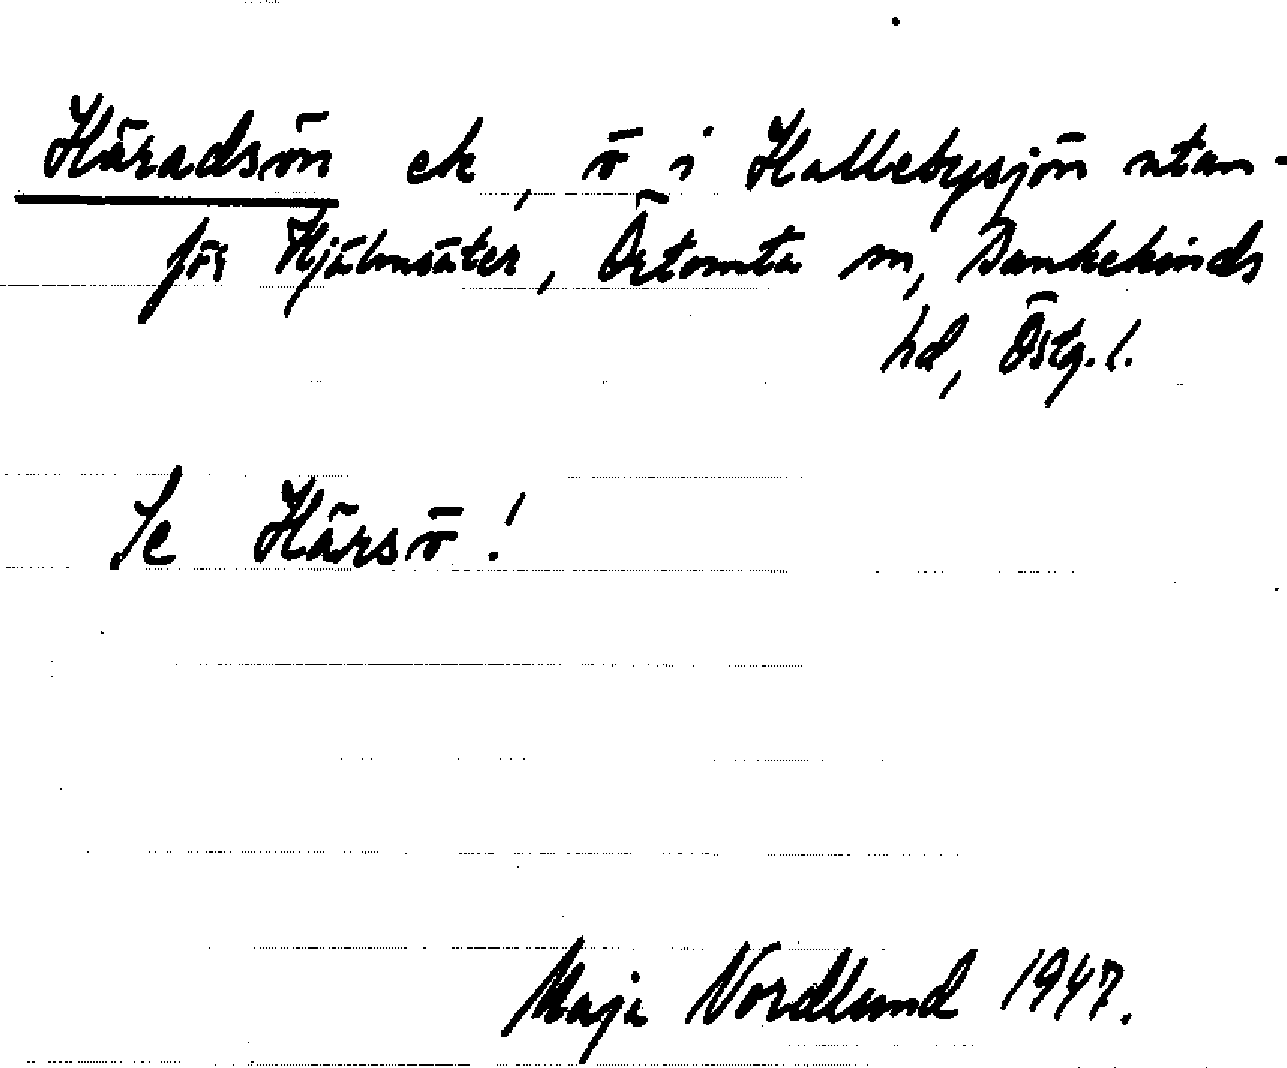 Häradsön ek, ö i Hallebysjön utan-
för Hjälmsäter, Örtomta sn, Bankekinds
hd, Östg. l.
Se Härsö!
Maja Nordlund 1947.